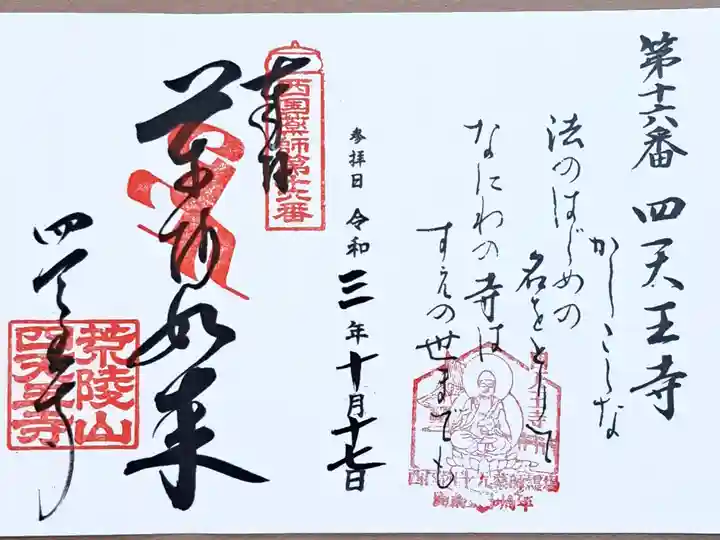 第十六番 四天王寺
かしこしな
法のはじめの
名をとりて
なにわの寺は
すえの世までも
参拝日 令和三年十月十七日
西国薬師第十六番
奉拝
薬師如来
四天王寺
荒陵山
四天王寺